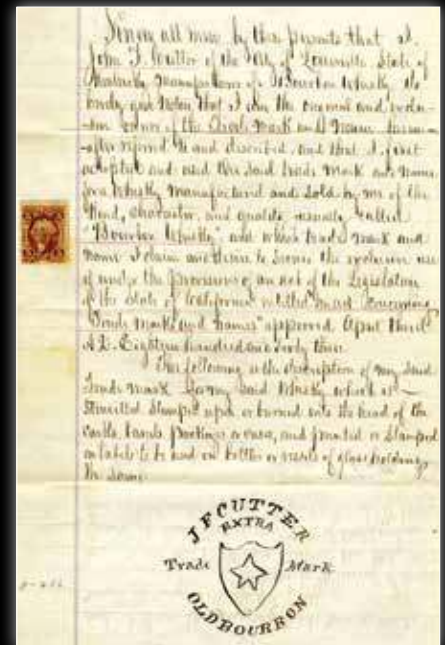 Know all men by these presents that I
John F. Cutter of the City of Louisville State of
Kentucky manufacturer of Bourbon Whisky do
hereby give notice that I am the owner and
owner of the Trade Mark and Name herein
after referred to and described and that I first
adopted and used the said trade mark and name
for a Whisky manufactured and sold by me of the
Kind, character, and quality usually called
"Bourbon Whisky" and which trade mark and
name I claim and desire to secure the exclusive use
of under the provisions of an act of the Legislature
of the State of California entitled "An act Concerning
Trade marks and names" approved April third
A.D. Eighteen hundred and sixty three
The following is the description of my said
trade mark for my said Whisky which is
stencilled stamped upon or burned into the head of the
casks, barrels packages or cases, and printed or stamped
on labels to be used on bottles or vessels of glass holding
the same
J F CUTTER
EXTRA
Trade Mark
OLD BOURBON